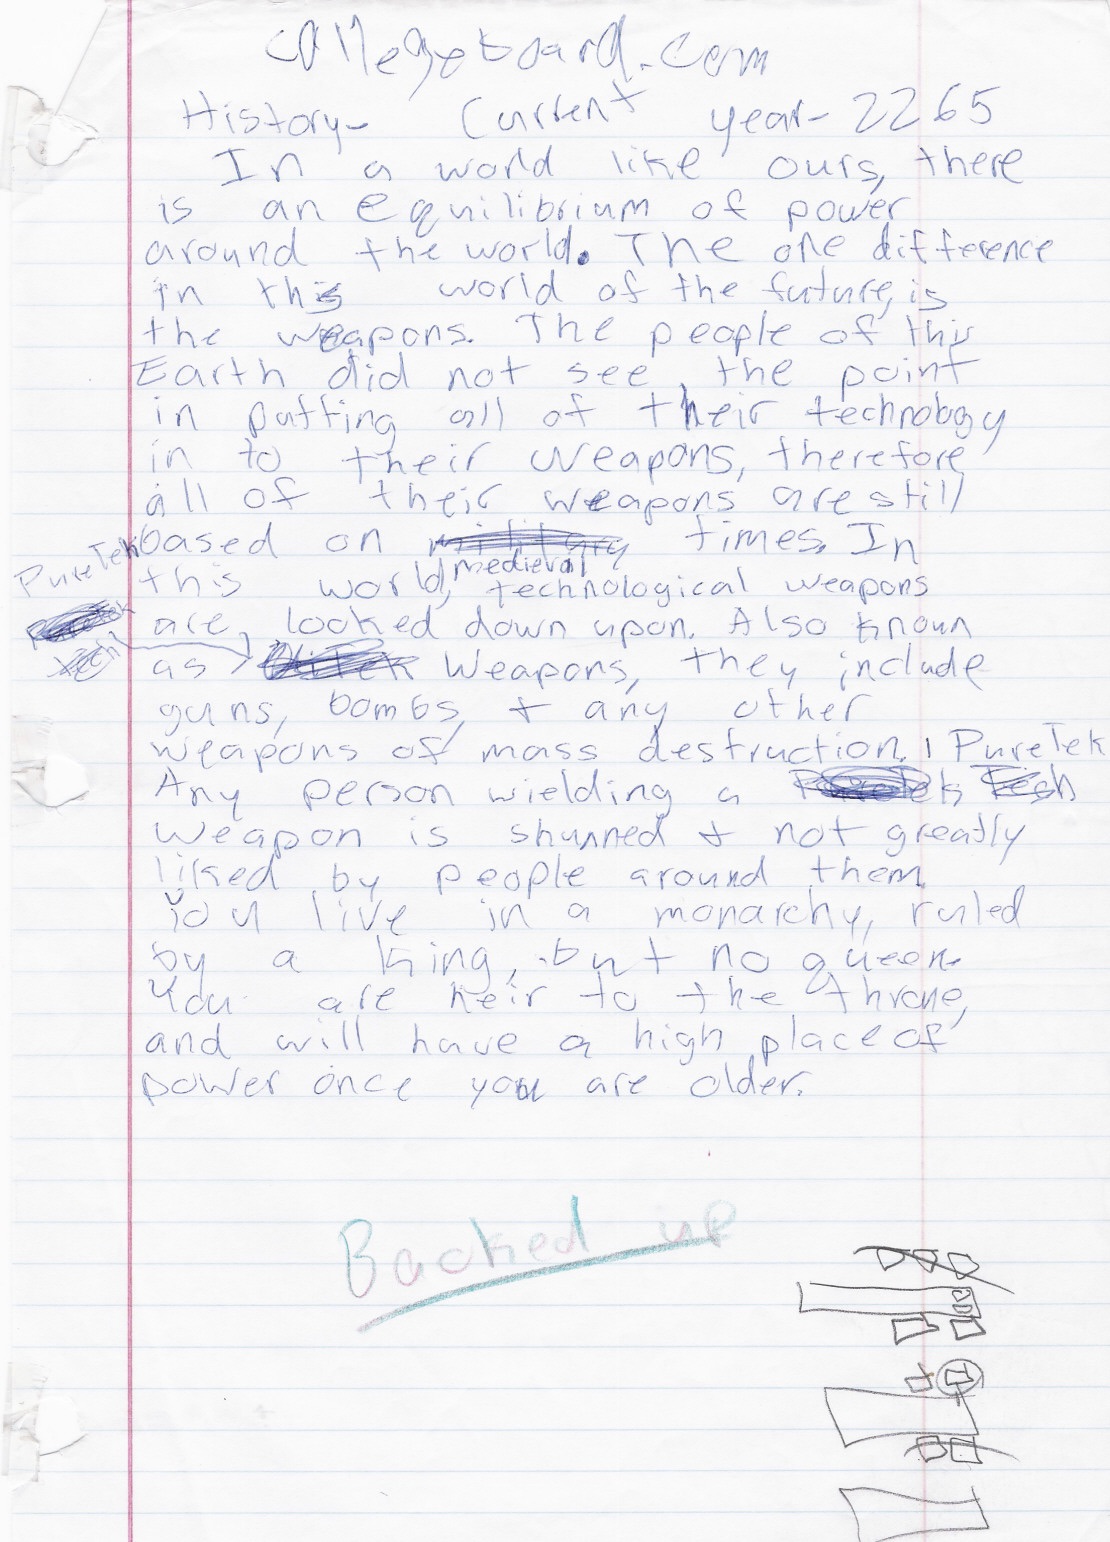 collegeboard.com
History- Current year- 2265
In a world like ours, there
is an equilibrium of power
around the world. The one difference
in this world of the future, is
the weapons. The people of this
Earth did not see the point
in putting all of their technology
in to their weapons, therefore
all of their weapons are still
based on military times. In
medieval
PureTek
this world, technological weapons
are looked down upon. Also known
as Weapons, they include
guns, bombs, + any other
weapons of mass destruction.
PureTek
Any person wielding a Tech
weapon is shunned + not greatly
liked by people around them.
You live in a monarchy, ruled
by a king, but no queen.
You are heir to the throne,
and will have a high place of
power once you are older.
Backed up